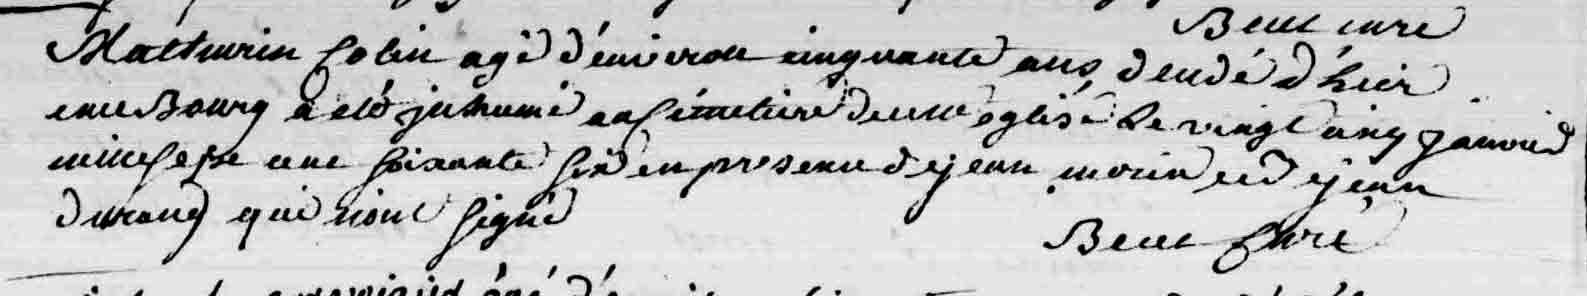 curé
Mathurin Colin agé d'environ cinquante ans décédé d'hier
en ce Bourg a eté inhumé au cimetiere de cette eglise le vingt cinq janvier
mille sept cent soixante six en presence de jean morin et de jean
durand qui n'ont signé
curé